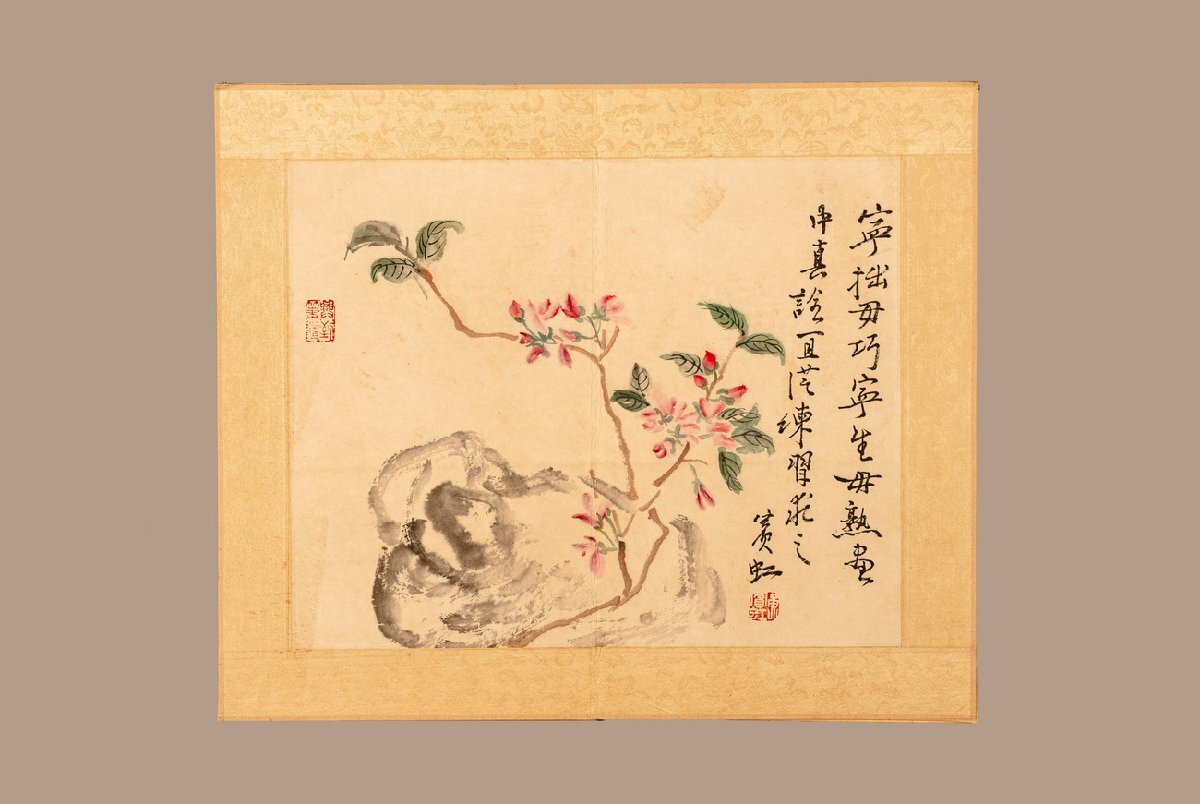 寧拙毋巧寧生毋熟畫
中真詮宜從練習求之
賓虹